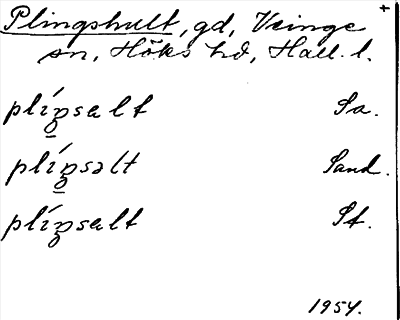 Plingshult, gd, Veinge +
sn, Höks hd, Hall. l.
plíŋsalt Sa.
plíŋsalt Sand.
plíŋsalt St.
1954.